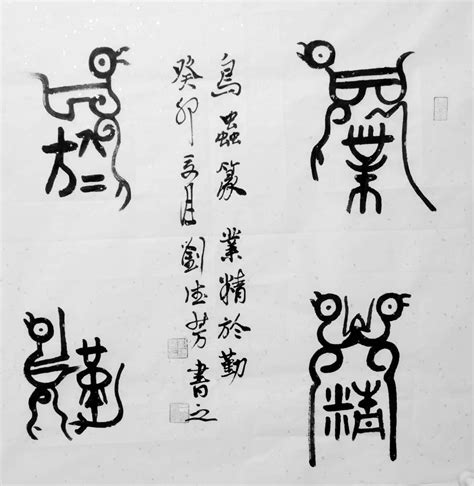 業
精
鳥蟲篆 業精於勤
癸卯夏月劉德芳書之
於
勤